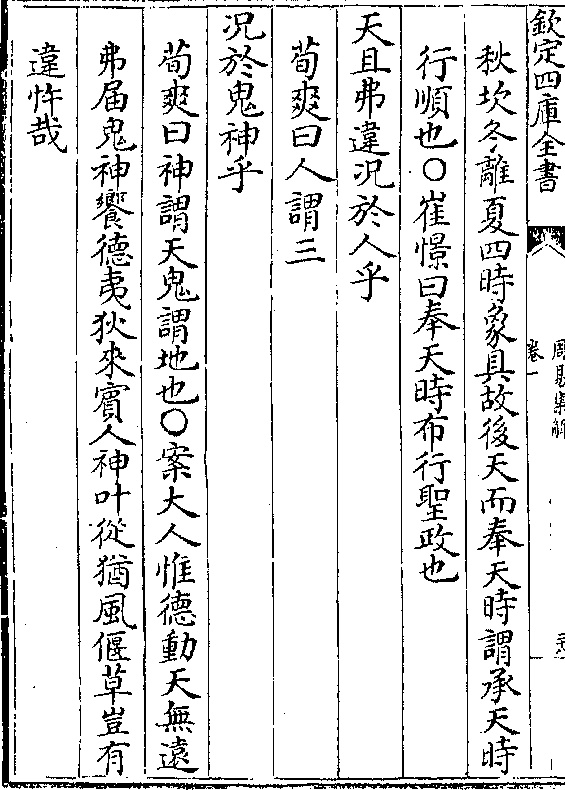 欽定四庫全書
周易集解
卷一
秋坎冬離夏四時象具故後天而奉天時謂承天時
行順也○崔憬曰奉天時布行聖政也
天且弗違況於人乎
荀爽曰人謂三
況於鬼神乎
荀爽曰神謂天鬼謂地也○案大人惟德動天無遠
弗届鬼神饗德夷狄來賓人神叶從猶風偃草豈有
違忤哉